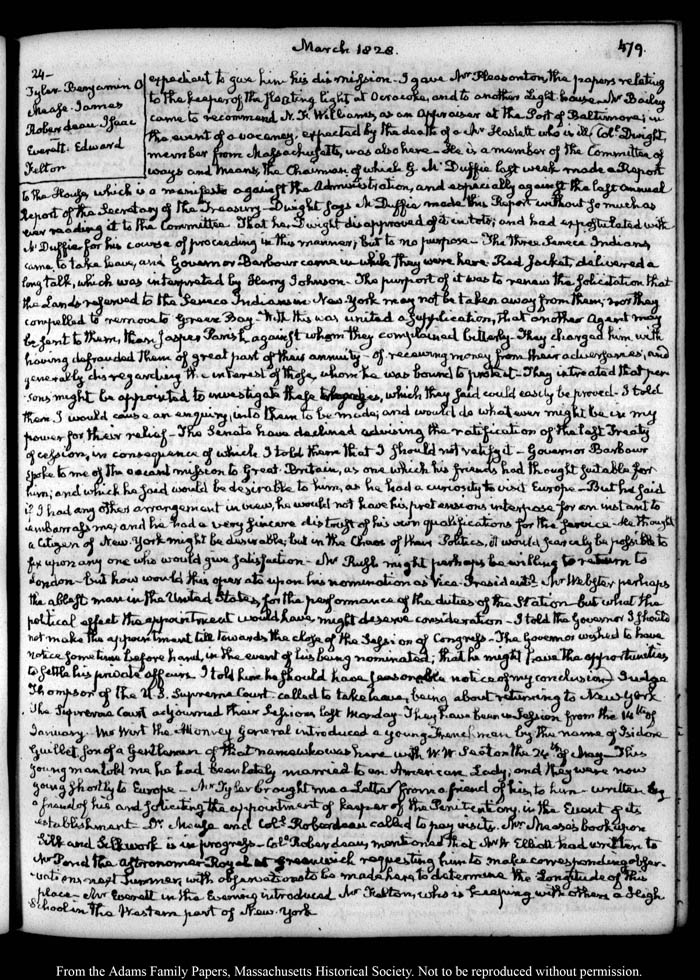 March 1828.
479.
24-
Tyler. Benjamin O
Mease. James
Roberdeau. Isaac
Everett. Edward
Felton
expedient to give him his dismission. I gave Mr Pleasonton the papers relating
to the keeper of the floating light at Ocracoke, and to another Light house. Mr Bailey
came to recommend N. F. Williams, as an Appraiser at the Port of Baltimore; in
the event of a vacancy, expected by the death of a Mr Haslett who is ill. Coll. Dwight,
member from Massachusetts, was also here. He is a member of the Committee of
ways and Means, the Chairman of which G. McDuffie last week made a Report
to the House, which is a manifesto against the Administration, and especially against the last annual
Report of the Secretary of the Treasury. Dwight says McDuffie made this Report without so much as
ever reading it to the Committee. That he, Dwight disapproved of it in toto; and had expostulated with
McDuffie for his course of proceeding in this manner; but to no purpose. The three Seneca Indians,
came, to take leave, and Governor Barbour came in while they were here. Red Jacket, delivered a
long talk, which was interpreted by Harry Johnson. The purport of it was to renew the solicitation that
the Lands reserved to the Seneca Indians in New-York may not be taken away from them; nor they
compelled to remove to Green Bay. With this was united a supplication, that another Agent may
be sent to them, than Jasper Parish, against whom they complained bitterly. They charged him with
having defrauded them of great part of their annuity. of receiving money from their adversaries, and
generally disregarding the interest of those, whom he was bound to protect. They intreated that per-
sons might be appointed to investigate these charges, which they said could easily be proved. I told
them I would cause an enquiry into them to be made, and would do what ever might be in my
power for their relief. The Senate have declined advising the ratification of the last Treaty
of cession, in consequence of which I told them that I should not ratify it. Governor Barbour
spoke to me of the vacant mission to Great-Britain, as one which his friends had thought suitable for
him; and which he said would be desirable to him, as he had a curiosity to visit Europe. But he said
if I had any other arrangement in view, he would not have his pretensions interpose for an instant to
embarrass me; and he had a very sincere distrust of his own qualifications for the service. He thought
a Citizen of New York might be desirable; but in the Chaos of their Politics, it would scarcely be possible to
fix upon any one who would give satisfaction. Mr Rush might perhaps be willing to return to
London. but how would this operate upon his nomination as Vice-President? Mr Webster perhaps
the ablest man in the United States, for the performance of the duties of the Station. but what the
political effect the appointment would have might deserve consideration. I told the Governor I should
not make the appointment till towards the close of the Session of Congress. The Governor wished to have
notice sometime before hand, in the event of his being nominated; that he might have the opportunities
to settle his private affairs. I told him he should have seasonable notice of my conclusion. Judge
Thompson of the U.S. Supreme Court called to take leave, being about returning to New York.
The Supreme Court adjourned their Session last Monday. They have been in Session from the 14th of
January. Mr Wirt the Attorney General introduced a young Frenchman by the name of Isidore
Guillet, son of a Gentleman of that name who was here with W. W. Seaton the 24th of May. This
young man told me he had been lately married to an American Lady; and they were now
going shortly to Europe. Mr Tyler brought me a Letter from a friend of his, to him. written by
a friend of his and soliciting the appointment of keeper of the Penitentiary, in the Event of its
establishment. Dr Mease and Coll. Roberdeau called to pay visits. Mr Mease's book upon
Silk and Silkwork is in progress. Coll. Roberdeau, mentioned that Mr W Elliott had written to
Mr Pond the Astronomer-Royal at Greenwich requesting him to make corresponding obser-
vations next Summer, with observations to be made here, to determine the Longitude of this
place. Mr Everett in the Evening introduced Mr Felton, who is keeping with others a High
School in the Western part of New-York
From the Adams Family Papers, Massachusetts Historical Society. Not to be reproduced without permission.